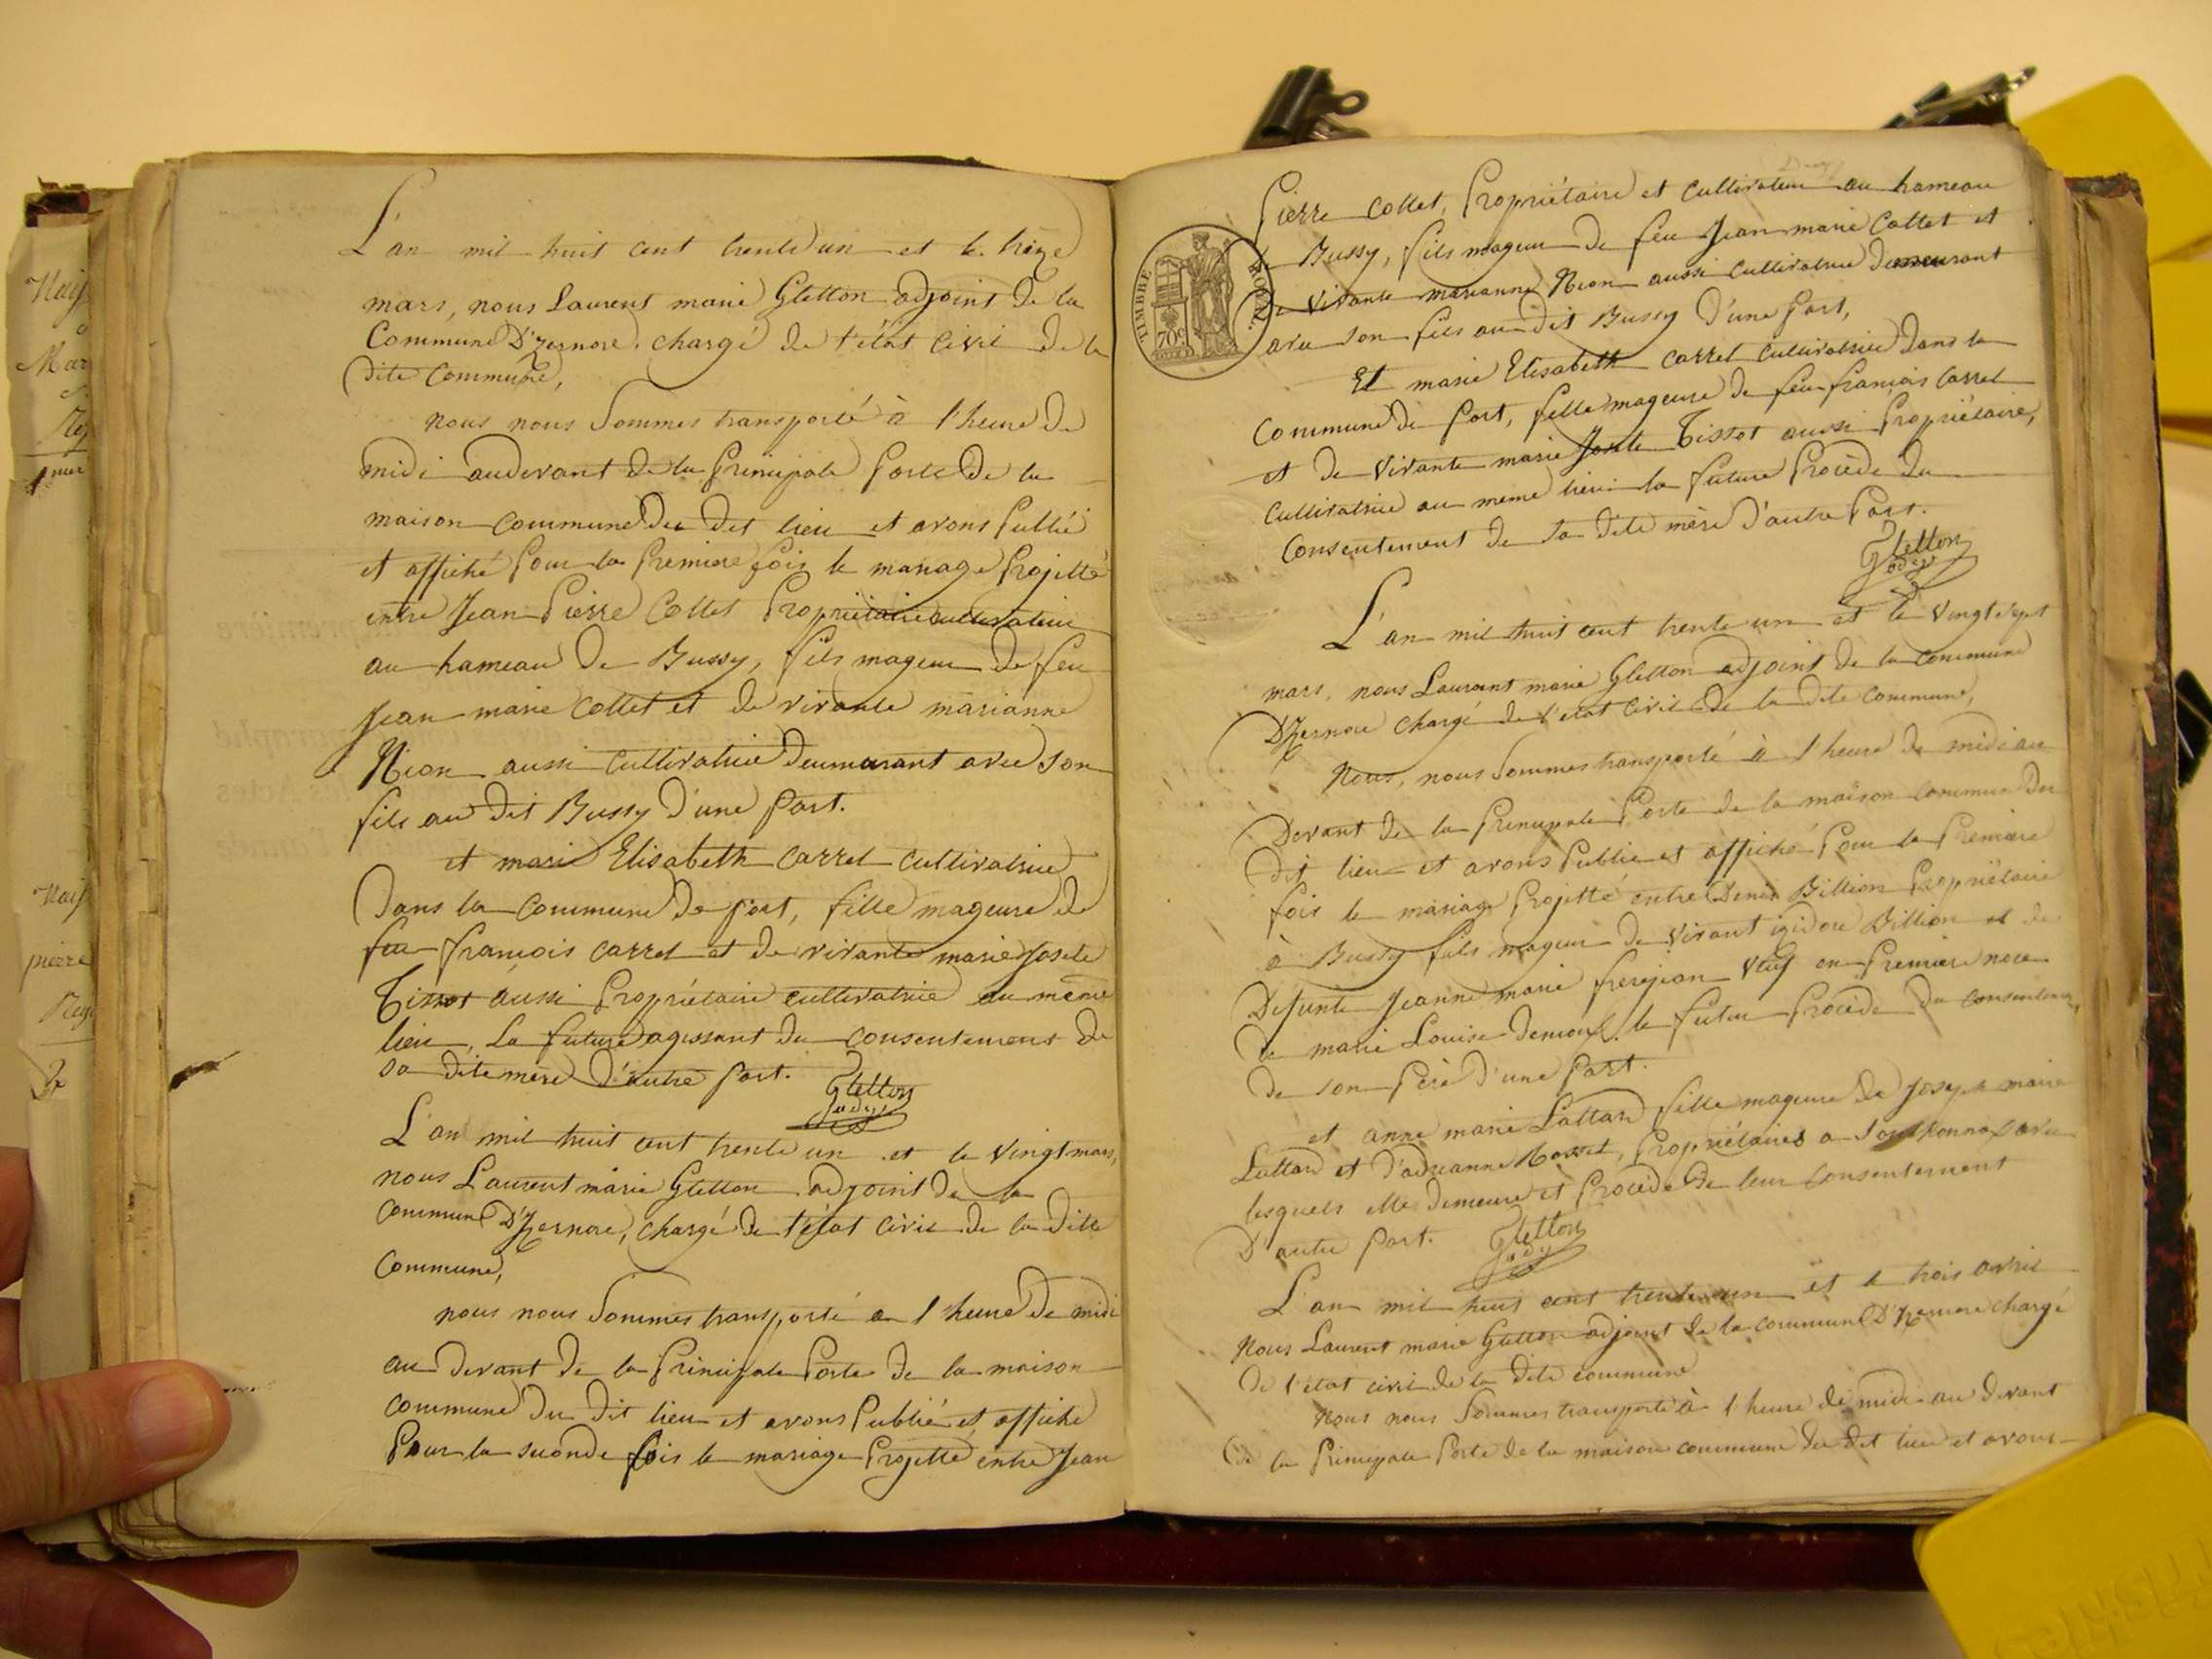 L'an mil huit cent trente un et le treze
mars, nous Laurent marie Gletton adjoint de la
Commune D'Izernore, chargé de l'état Civil de la
dite Commune,
nous nous Sommes transporté à l'heure de
midi audevant de la Principale Porte de la
maison commune du dit lieu et avons Publié
et affiché Pour la Premiere fois le mariage Projetté
entre Jean Pierre Collet Propriétaire cultivateur
au hameau de Bussy, fils mageur de feu
Jean marie Collet et de vivante marianne
Nion aussi Cultivatrice deumeurant avec son
fils au dit Bussy d'une Part.
et marie Elisabeth Carrel Cultivatrice
Dans la Commune de Port, fille mageure de
feu françois Carrel et de vivante marie Josete
Tissot aussi Propriétaire cultivatrice au même
lieu, La future agissant du consentement de
sa dite mère d'autre Part. Gletton
adj
L'an mil huit cent trente un et le vingt mars,
nous Laurent marie Gletton adjoint de la
Commune D'Izernore, chargé de l'état Civil de la dite
Commune,
nous nous Sommes transporté a l'heure de midi
au devant de la Principale Porte de la maison
commune du dit lieu et avons Publié et affiché
Pour la seconde fois le mariage Projetté entre Jean
Pierre Collet, Propriétaire et Cultivateur au hameau
de Bussy, fils mageur de feu Jean marie Collet et
de vivante marianne Nion aussi Cultivatrice demeurant
avec son fils au dit Bussy d'une Part,
TIMBRE ROYAL
70c
Et marie Elisabeth Carrel Cultivatrice Dans la
Commune de Port, fille mageure de feu françois Carrel
et de vivante marie Josete Tissot aussi Propriétaire,
Cultivatrice au meme lieu la future Procède du
Consentement de sa dite mère d'autre Part.
Gletton
adj
L'an mil huit cent trente un et le vingt sept
mars, nous Laurent marie Gletton adjoint de la Commune
D'Izernore chargé de l'état Civil de la dite Commune,
Nous, nous Sommes transporté à l'heure de midi au
Devant de la Principale Porte de la maison Commune du
dit lieu et avons Publié et affiché Pour la Premiere
fois le mariage Projetté entre Denis Billion Propriétaire
à Bussy fils mageur de vivant igidore Billion et de
Defunte Jeanne marie frerejean veuf en Premiere noce
de marie Louise le futur Procède du Consentement
de son Père d'une Part.
et anne marie Lattard fille mageure de Joseph marie
Lattard et d'adrianne Propriétaires a avec
lesquels elle Demeure et Procède de leur Consentement
D'autre Part. Gletton
adj
L'an mil huit cent trente un et le trois avril
Nous Laurent marie Gletton adjoint de la commune D'Izernore chargé
de l'état civil de la dite commune
Nous nous Sommes transporté à l'heure de midi au devant
de la Principale Porte de la maison commune du dit lieu et avons